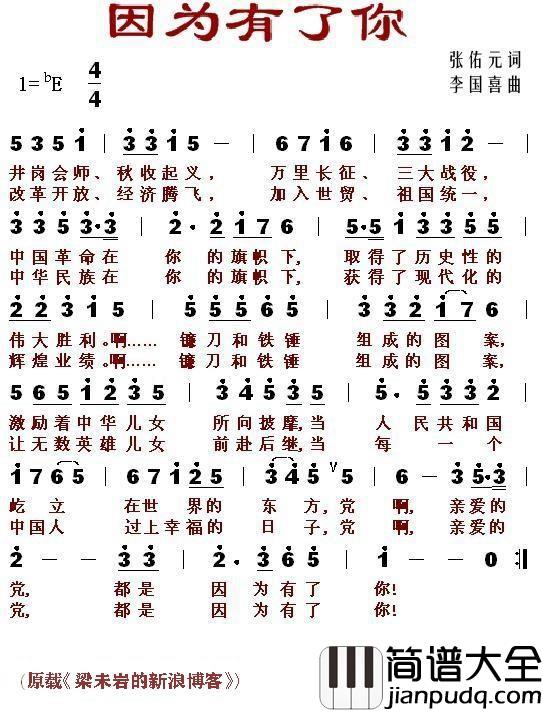 因为有了你
张佑元 词
1=ᵇE 4/4
李国喜 曲
5 3 5 1 | 3 3 1 5 – | 6 7 1 6 | 3 3 1 2 –
井岗会师、秋收起义， 万里长征、三大战役，
改革开放、经济腾飞， 加入世贸、祖国统一，
3 3 5 3·3 | 2· 2 1 7 6 | 5·5 1 3 3 5 5
中国革命在 你 的旗帜下， 取得了历史性的
中华民族在 你 的旗帜下， 获得了现代化的
2 2 3 1 5 | 5 5 5 6 5 | 3 3 2 1 7 6
伟大胜利。啊…… 镰刀和铁锤 组成的图案，
辉煌业绩。啊…… 镰刀和铁锤 组成的图案，
5 6 5 1 2 3 5 | 3 4 5 3 5 | 5· 5 3 3 2
激励着中华儿女 所向披靡，当 人民共和国
让无数英雄儿女 前赴后继，当 每一个
1 7 6 5 | 1 2 3 2 2· | 3 4 5 5 | 6 – 3 5·3
屹立 在世界的 东方，党 啊，亲爱的
中国人 过上幸福的 日子，党 啊，亲爱的
2 – – 3 3 | 2· 3 6 5 | 1 – – 0 :||
党， 都是 因为有了 你！
党， 都是 因为有了 你！
(原载《梁未岩的新浪博客》)
简谱大全
jianpudq.com